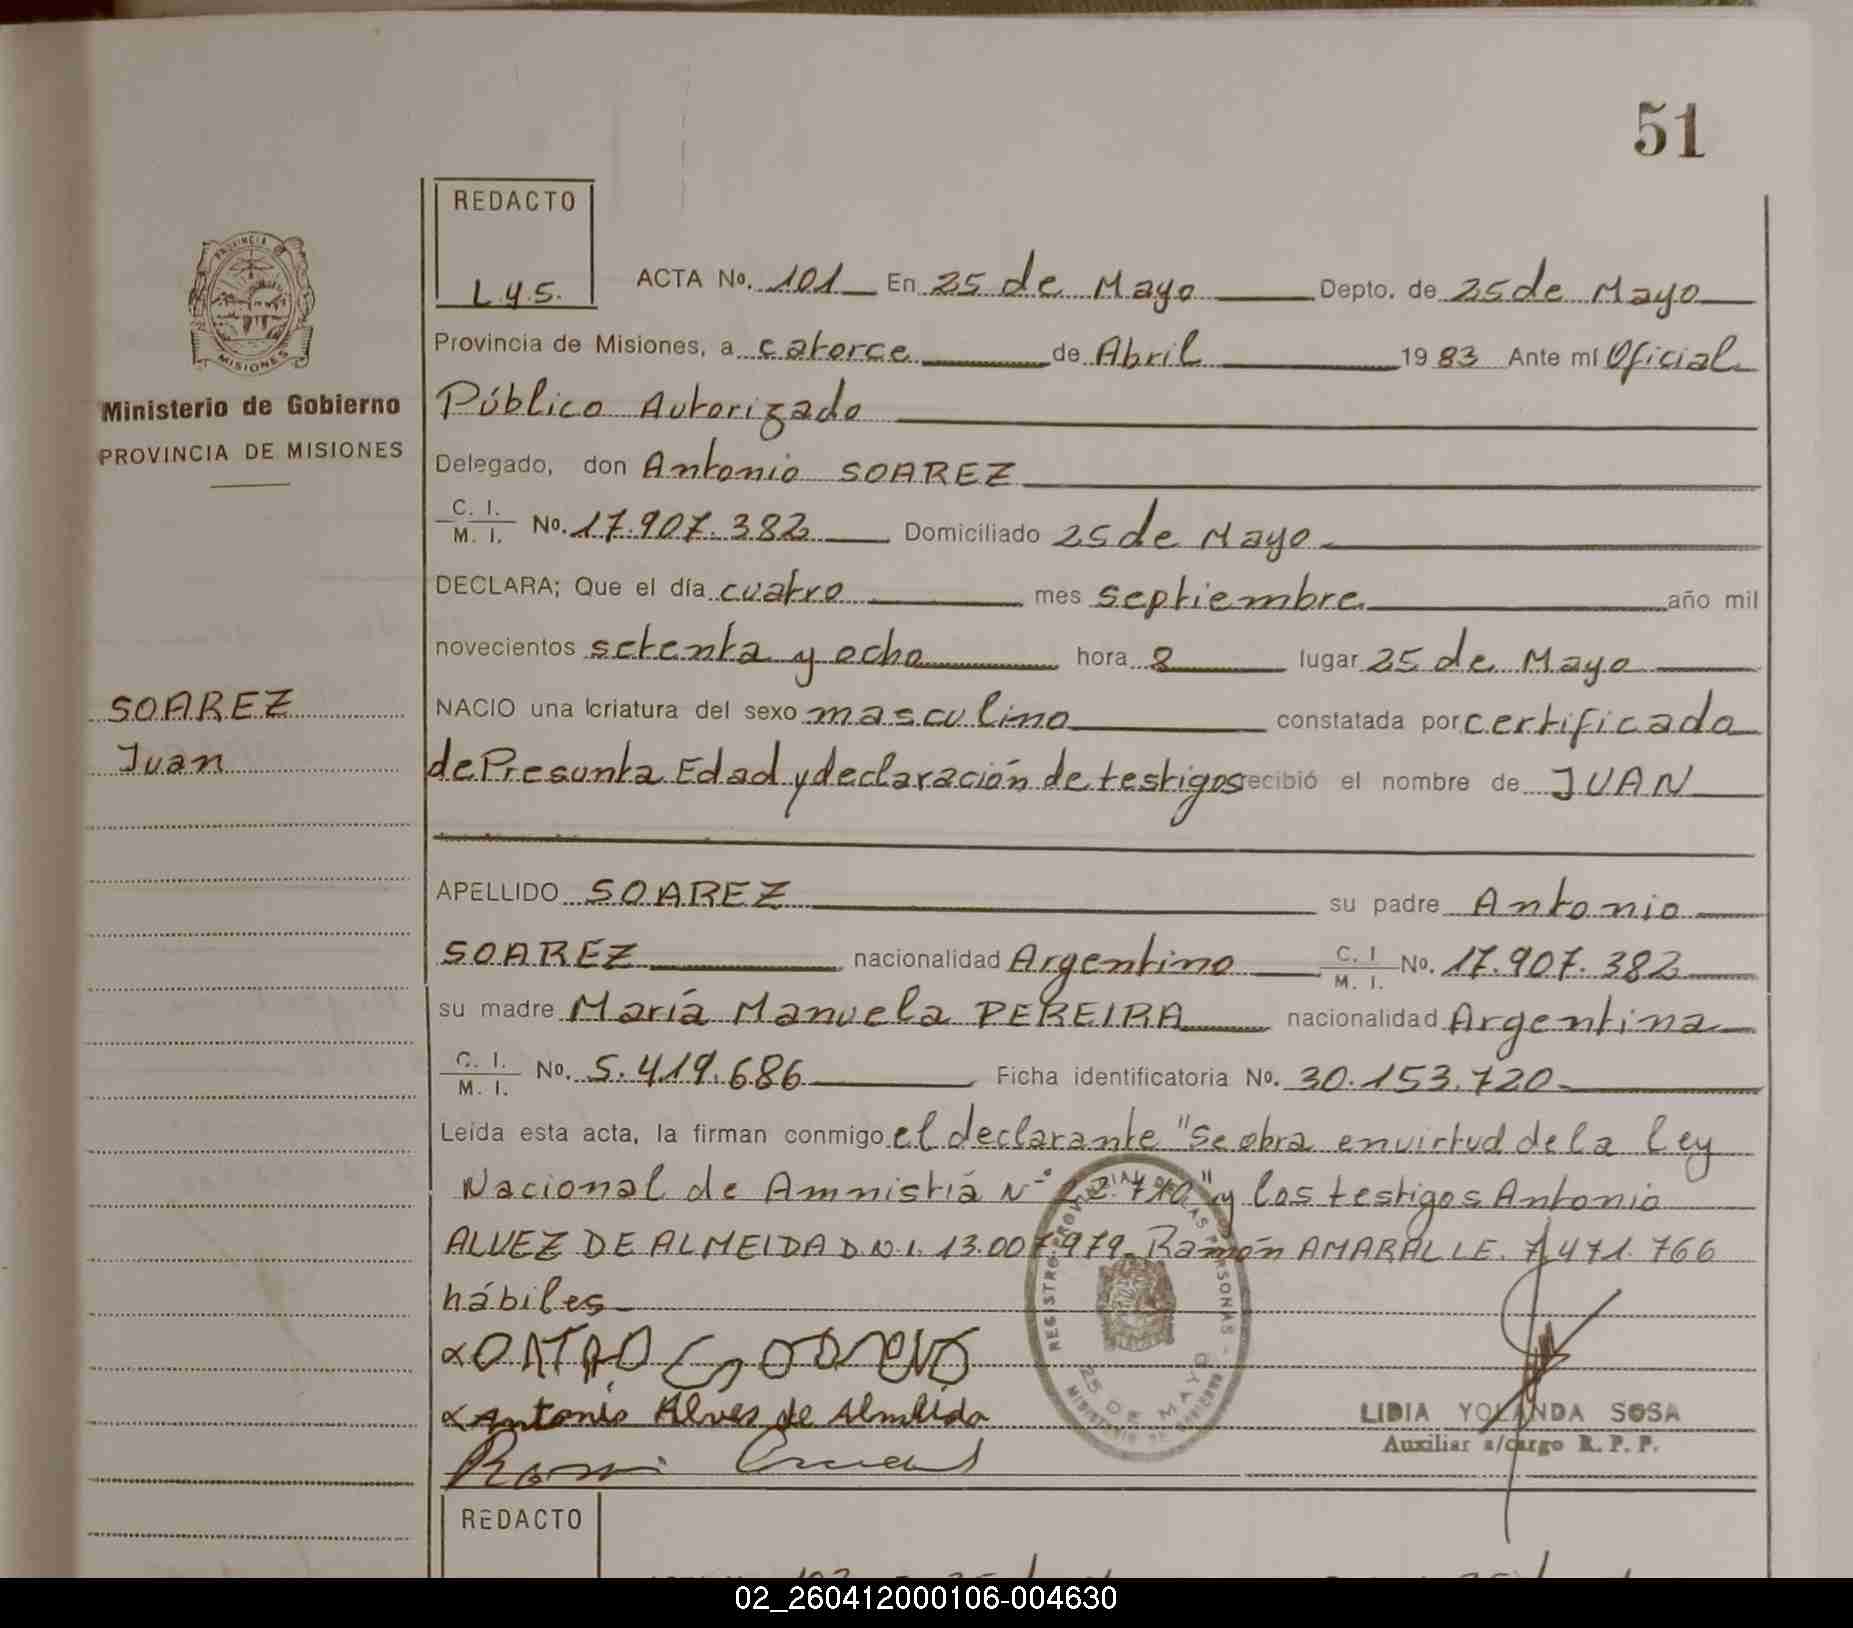 51
REDACTO
L.Y.S.
ACTA No. 101 En 25 de Mayo Depto. de 25 de Mayo
PROVINCIA
MISIONES
Ministerio de Gobierno
PROVINCIA DE MISIONES
Provincia de Misiones, a catorce de Abril 1983 Ante mí Oficial
Público Autorizado
Delegado, don Antonio SOAREZ
C. I. M. I. No. 17.907.382 Domiciliado 25 de Mayo
DECLARA; Que el día cuatro mes septiembre año mil
novecientos setenta y ocho hora 8 lugar 25 de Mayo
SOAREZ
Juan
NACIO una criatura del sexo masculino constatada por certificado
de Presunta Edad y declaración de testigos recibió el nombre de JUAN
APELLIDO SOAREZ su padre Antonio
SOAREZ nacionalidad Argentino C. I M. I. No. 17.907.382
su madre María Manuela PEREIRA nacionalidad Argentina
C. I. M. I. No. 5.419.686 Ficha identificatoria No. 30.153.720
Leída esta acta, la firman conmigo el declarante "Se obra en virtud de la Ley
Nacional de Amnistiá N° 22.710" y los testigos Antonio
ALVEZ DE ALMEIDA D.N.I. 13.007.979 Ramón AMARAL L.E. 7.471.766
hábiles
Antonio Alves de Almeida
REGISTRO PROVINCIAL DE LAS PERSONAS - MINISTERIO DE GOBIERNO
25 DE MAYO
LIDIA YOLANDA SOSA
Auxiliar a/cargo R. P. P.
REDACTO
02_260412000106-004630